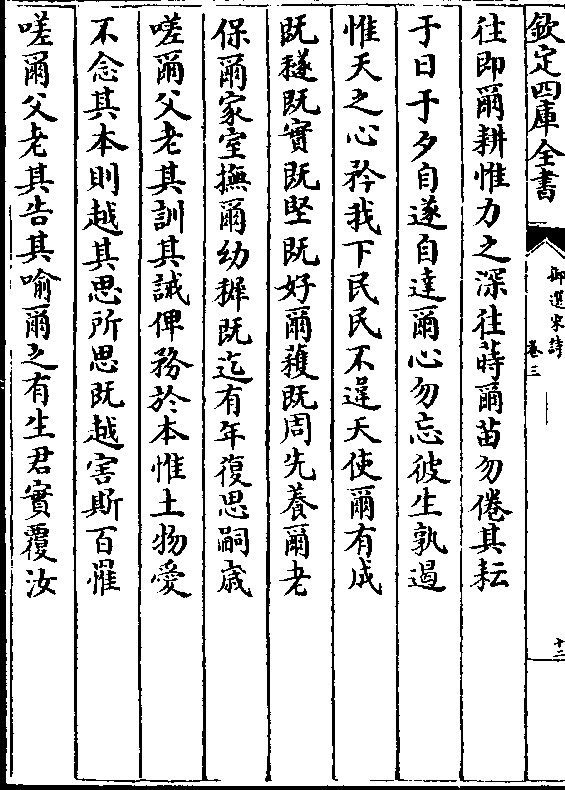 欽定四庫全書
御選宋詩
卷三
十二
往即爾耕惟力之深往蒔爾苗勿倦其耘
于日于夕自遂自達爾心勿忘彼生孰遏
惟天之心矜我下民民不違天使爾有成
既穟既實既堅既好爾穫既周先養爾老
保爾家室撫爾幼穉既迄有年復思嗣歲
嗟爾父老其訓其誡俾務於本惟土物愛
不念其本則越其思所思既越害斯百罹
嗟爾父老其告其喻爾之有生君實覆汝